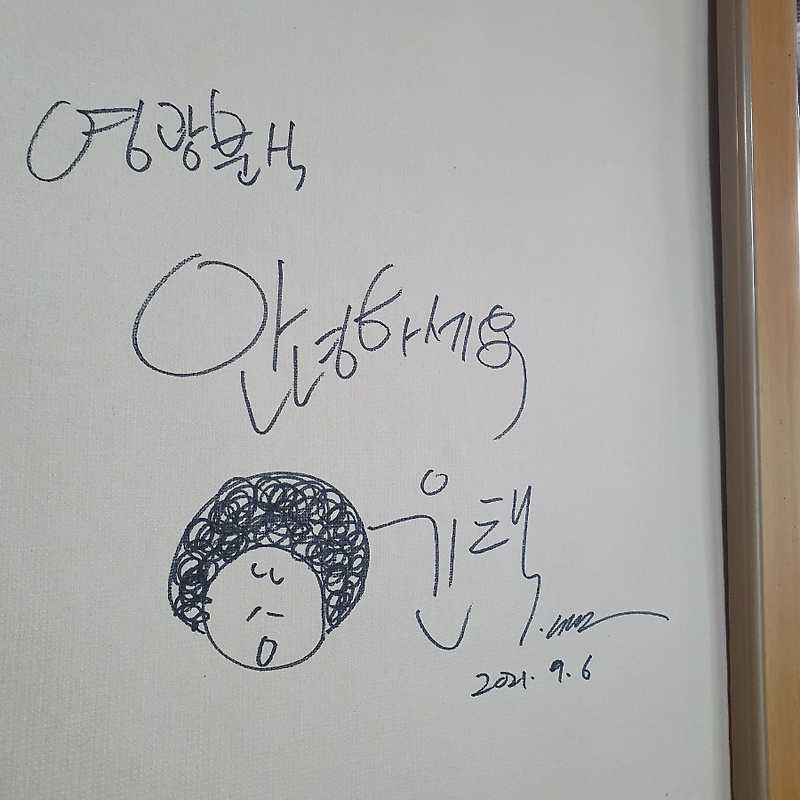 영광분식
안녕하세요
윤택
2021. 9. 6